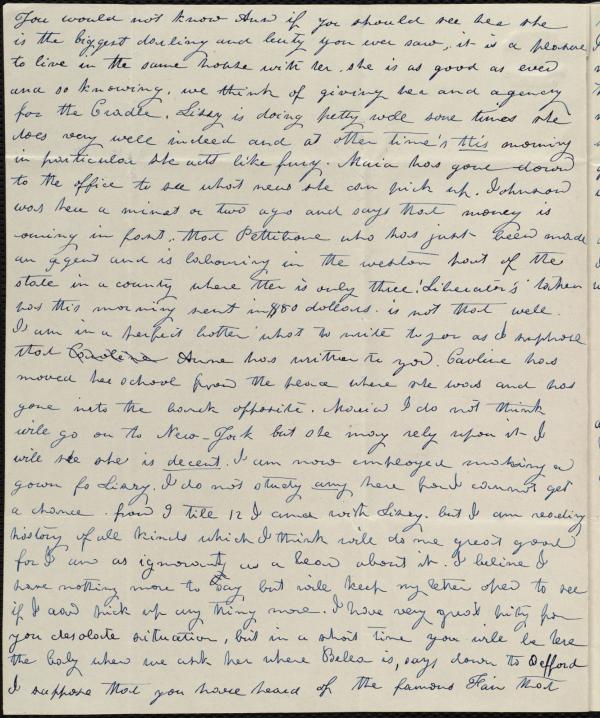 You would not know Ann if you should see her she
is the biggest darling and beuty you ever saw, it is a pleasure
to live in the same house with her, she is as good as ever
and so knowing. we think of giving her and agency
for the Cradle. Lissy is doing petty well some times she
does very well indeed and at other time's this morning
in particular she acts like fury. Maria has gone down
to the office to see what news she can pick up. Johnson
was here a minat or two ago and says that money is
coming in fast, that Pettibone who has just been made
an agent and is labouring in the western part of the
state in a county where tter is only three 'Liberator's' taken
has this morning sent in $80 dollars. is not that well.
I am in a perfect botter what to write to you as I suppose
that Caroline Anne has written to you. Caroline has
moved her school from the place where she was and has
gone into the bank opposite. Maria I do not think
will go on to New-York but she may rely upon it I
will see she is decent. I am now employed making a
gown fo Lissy. I do not study any here for I cannot get
a chance. from 9 till 12 I am with Lissy. but I am reading
history of all kinds which I think will do me great good
for I am as ignorant as a bear about it. I believe I
have nothing more to say but will keep my letter open to see
if I can pick up any thing more. I have very great pity for
you desolate situation, but in a short time you will be here
the baby when we ask her where Debea is, says down to Defford
I suppose that you have heard of the famous Fair that